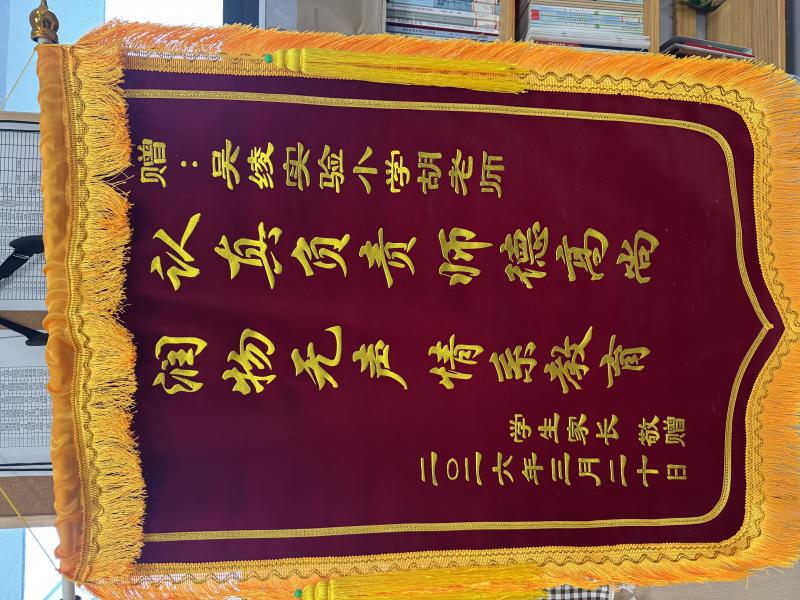 赠：吴绫实验小学胡老师
认真负责师德高尚
润物无声情系教育
学生家长 敬赠
二〇二六年三月二十日